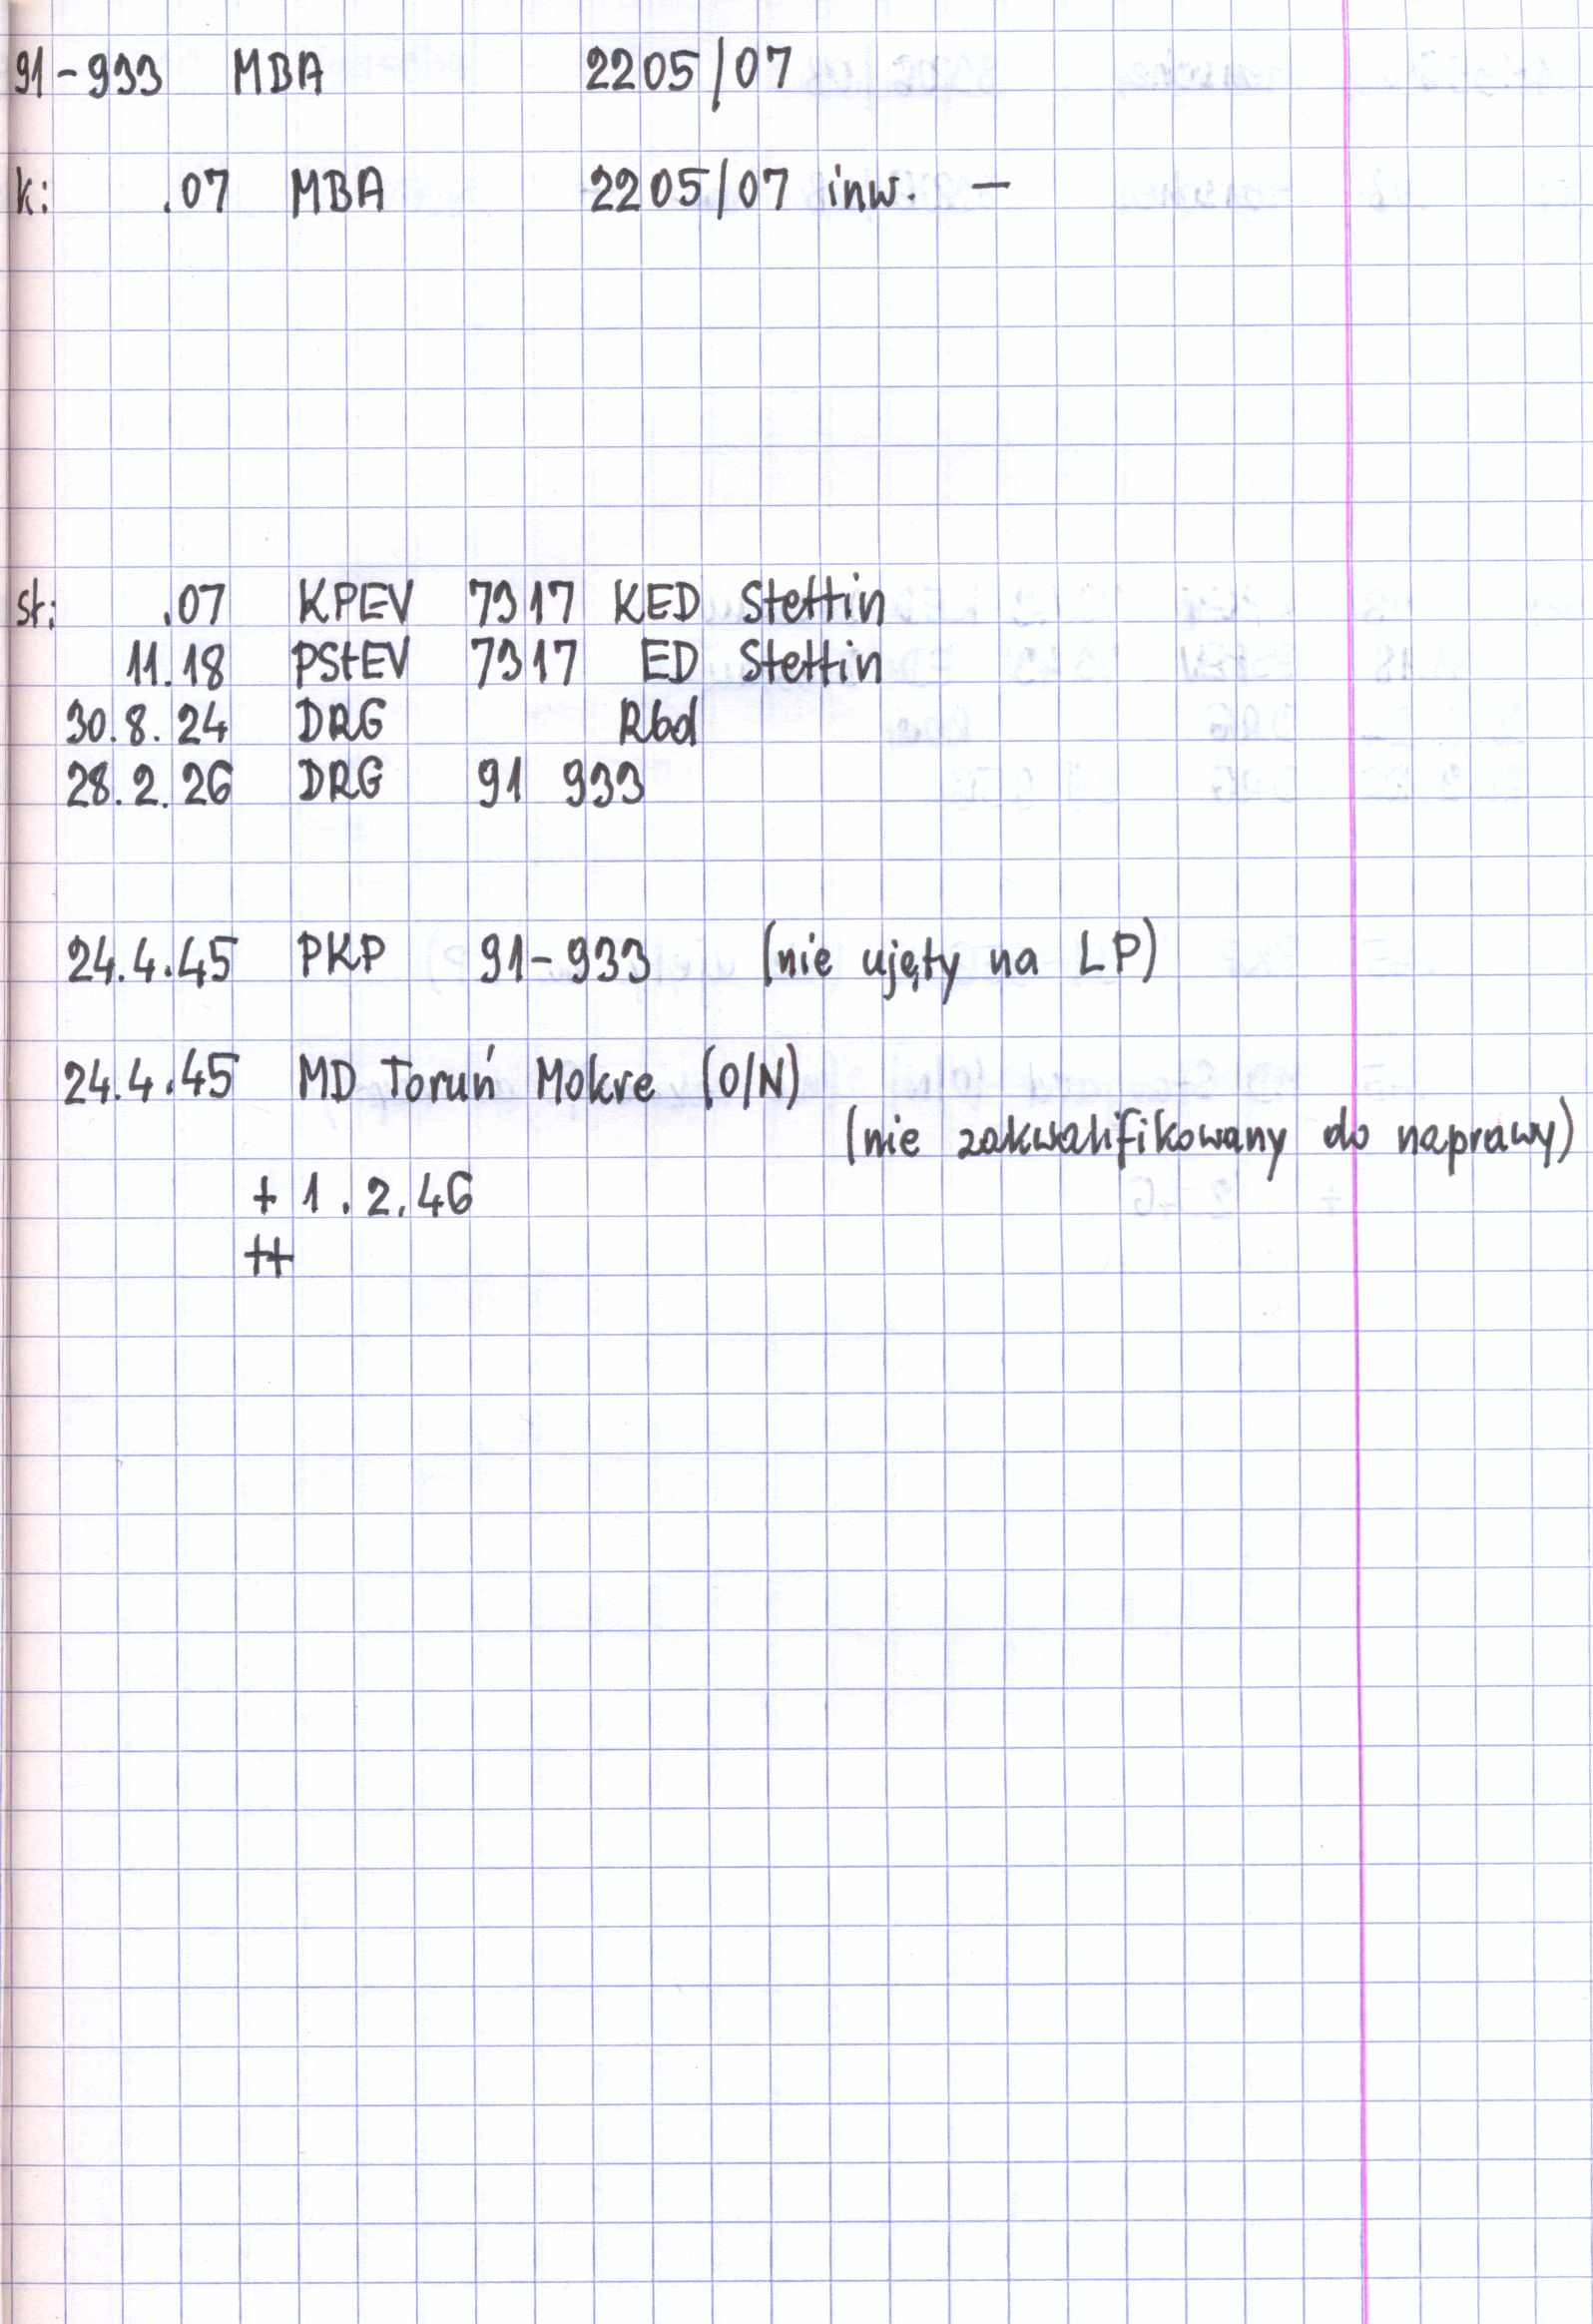 91-933 MBA 2205/07
k: .07 MBA 2205/07 inw. —
st: .07 KPEV 7317 KED Stettin
11.18 PStEV 7317 ED Stettin
30.8.24 DRG Rbd
28.2.26 DRG 91 933
24.4.45 PKP 91-933 (nie ujęty na LP)
24.4.45 MD Toruń Mokre (O/N)
(nie zakwalifikowany do naprawy)
+ 1.2.46
++